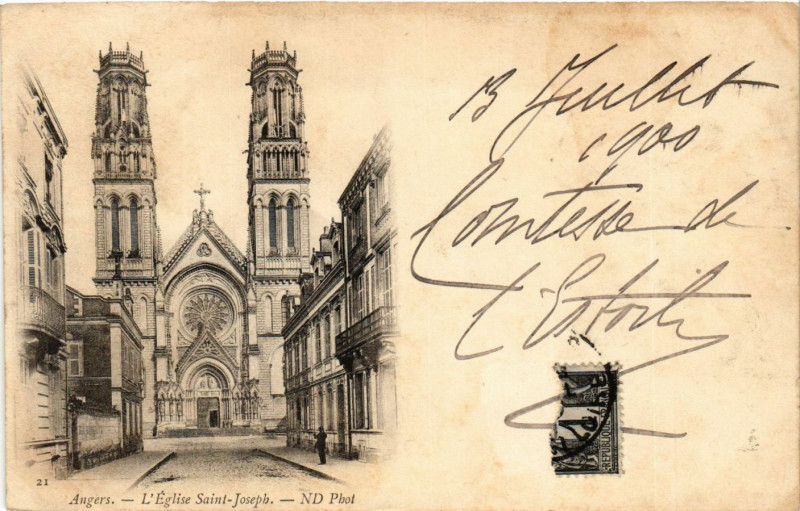 13 Juillet
1900
Comtesse de
RÉPUBLIQUE
21
Angers. — L'Église Saint-Joseph. — ND Phot